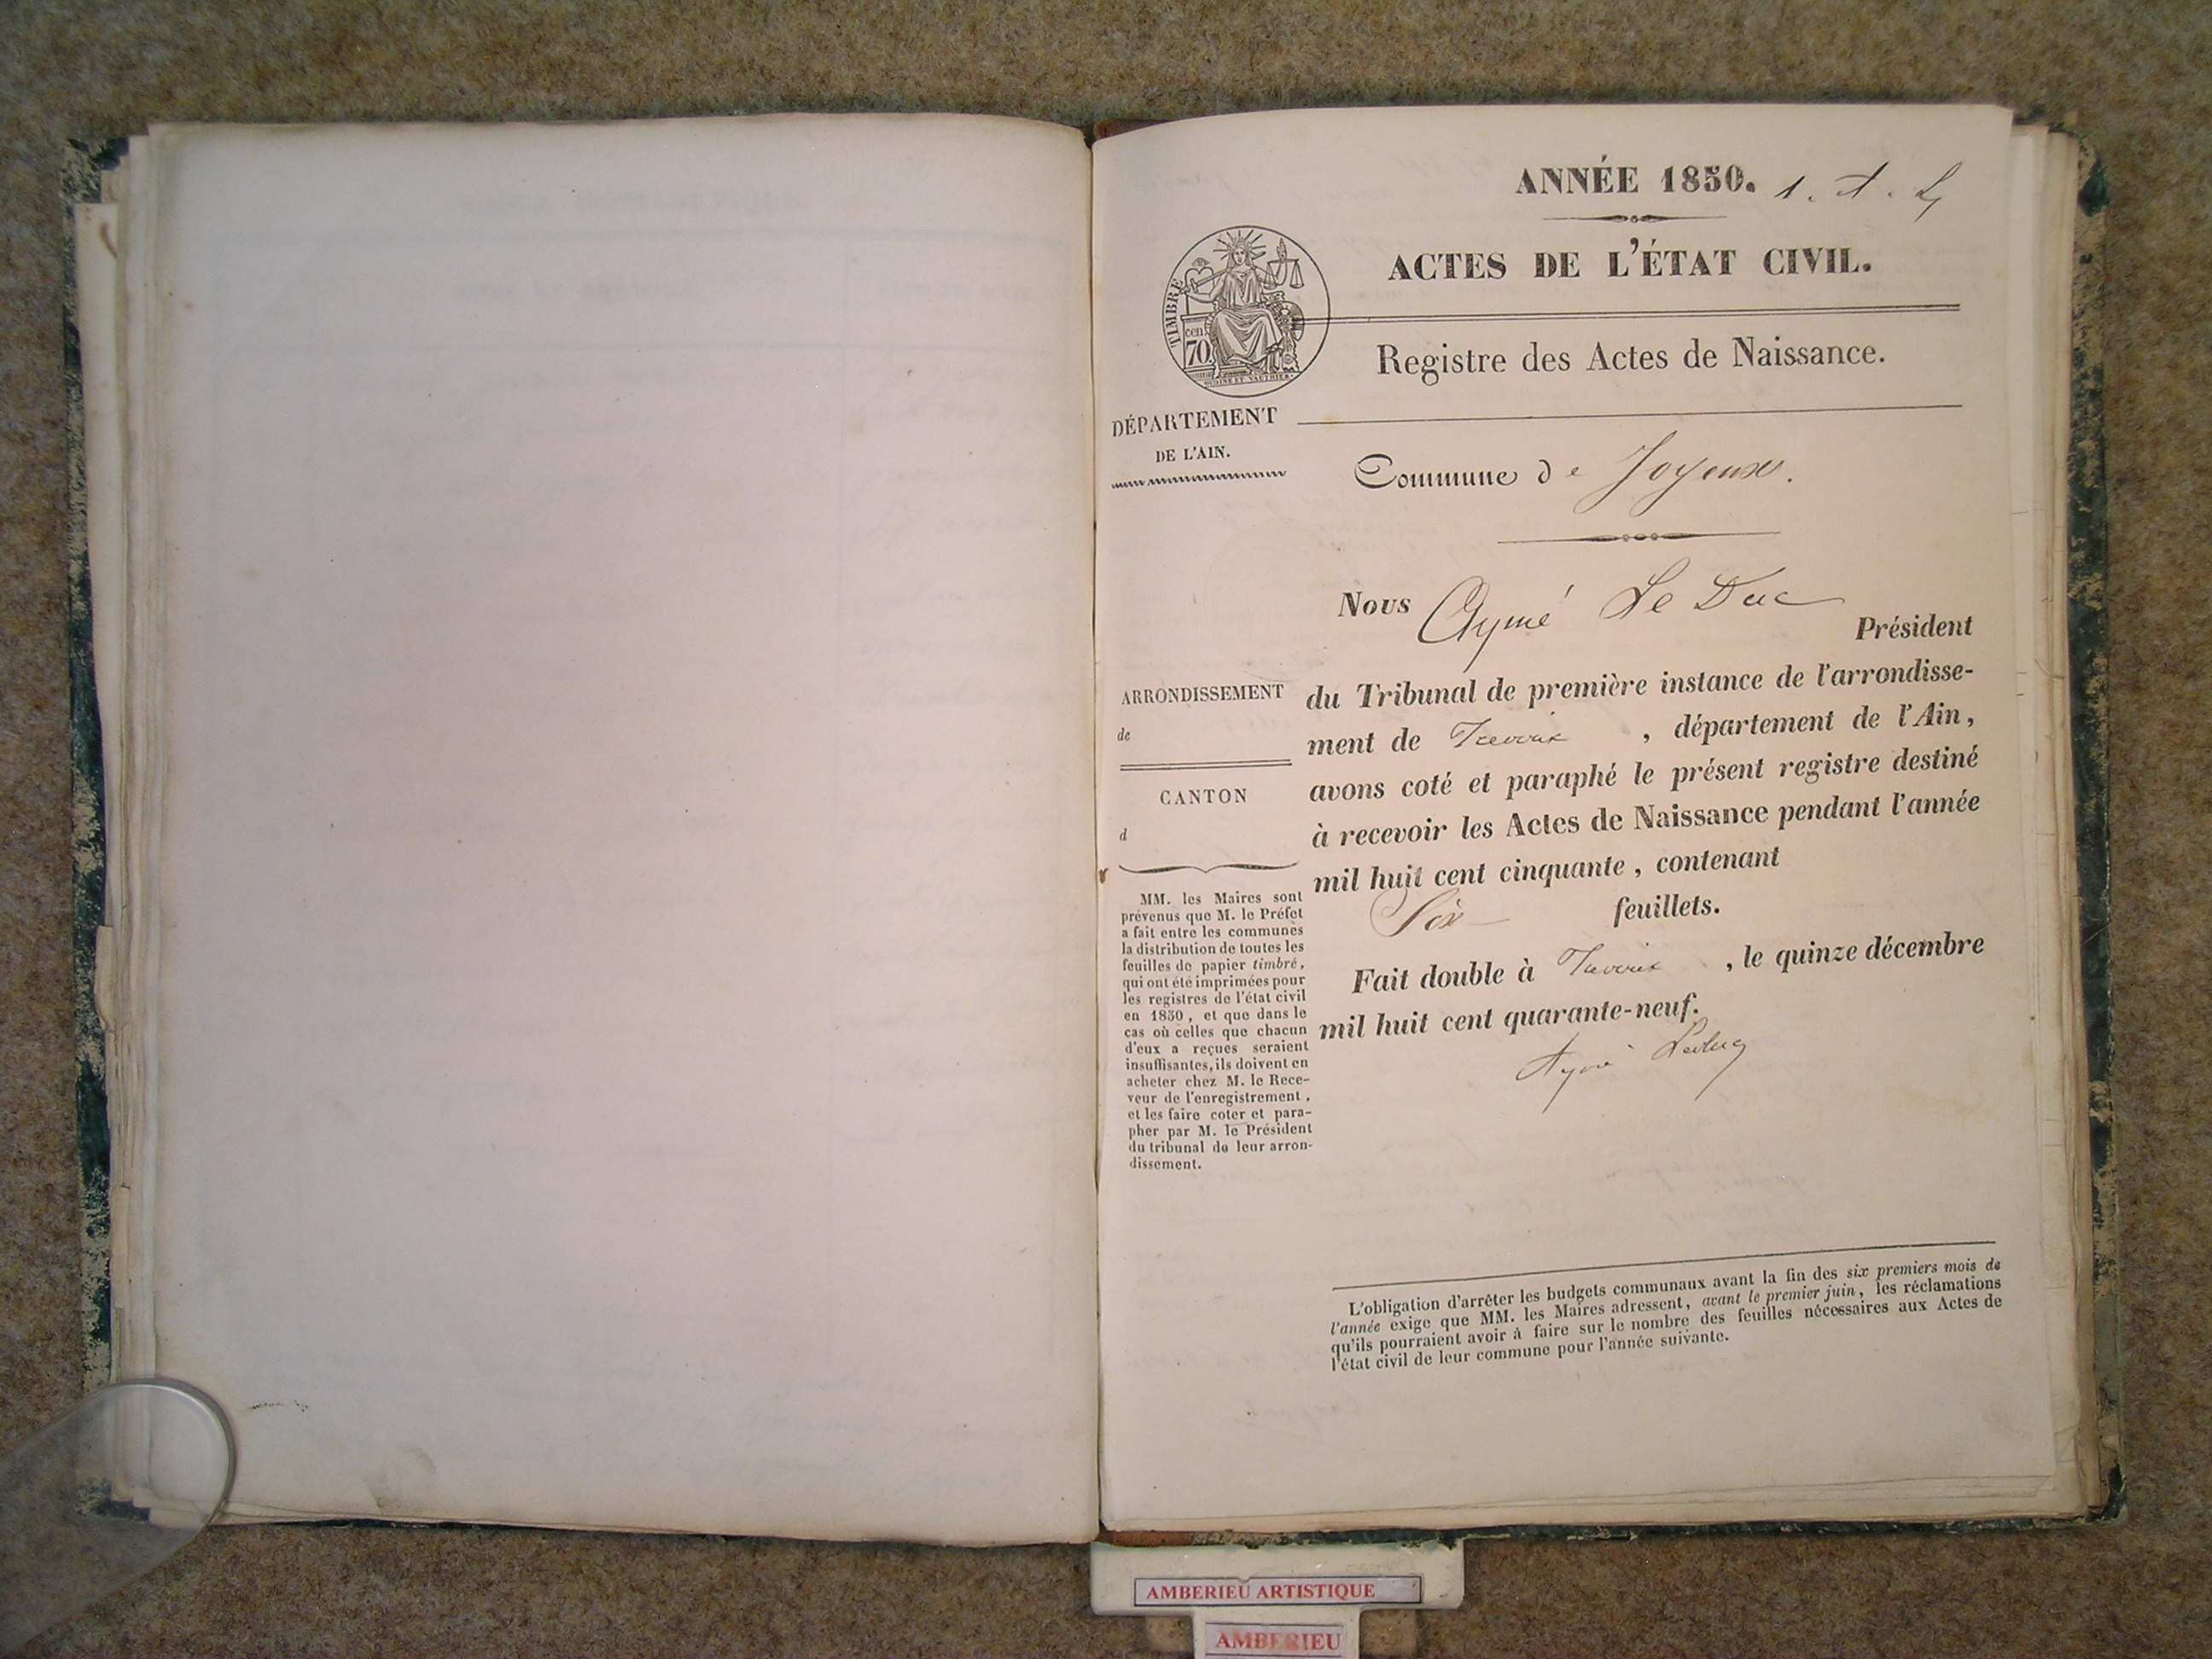 ANNÉE 1850. 1. A. L
ACTES DE L'ÉTAT CIVIL.
TIMBRE
cen.
70
OUDINÉ ET VAUTHIER.
Registre des Actes de Naissance.
DÉPARTEMENT
DE L'AIN.
Commune de Joyeux.
Nous Aymé Le Duc
Président
du Tribunal de première instance de l'arrondisse-
ment de Trévoux, département de l'Ain,
avons coté et paraphé le présent registre destiné
à recevoir les Actes de Naissance pendant l'année
mil huit cent cinquante, contenant
Six feuillets.
Fait double à Trévoux, le quinze décembre
mil huit cent quarante-neuf.
Aymé Leduc
ARRONDISSEMENT
de
CANTON
d
MM. les Maires sont
prévenus que M. le Préfet
a fait entre les communes
la distribution de toutes les
feuilles de papier timbré,
qui ont été imprimées pour
les registres de l'état civil
en 1850, et que dans le
cas où celles que chacun
d'eux a reçues seraient
insuffisantes, ils doivent en
acheter chez M. le Rece-
veur de l'enregistrement,
et les faire coter et para-
pher par M. le Président
du tribunal de leur arron-
dissement.
L'obligation d'arrêter les budgets communaux avant la fin des six premiers mois de
l'année exige que MM. les Maires adressent, avant le premier juin, les réclamations
qu'ils pourraient avoir à faire sur le nombre des feuilles nécessaires aux Actes de
l'état civil de leur commune pour l'année suivante.
AMBERIEU ARTISTIQUE
AMBERIEU